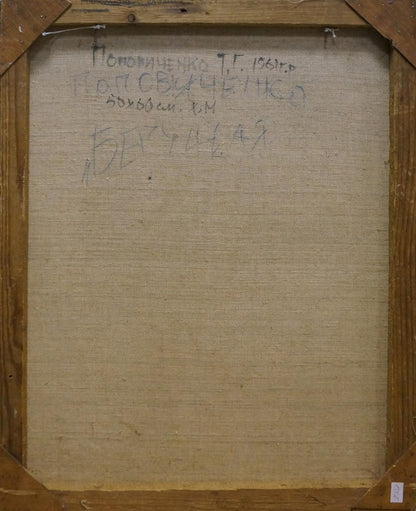 Поповиченко Т.Г. 1961г.р
ПОПОВИЧЕНКО
50х60 см. х.м
"БЕГУЩАЯ